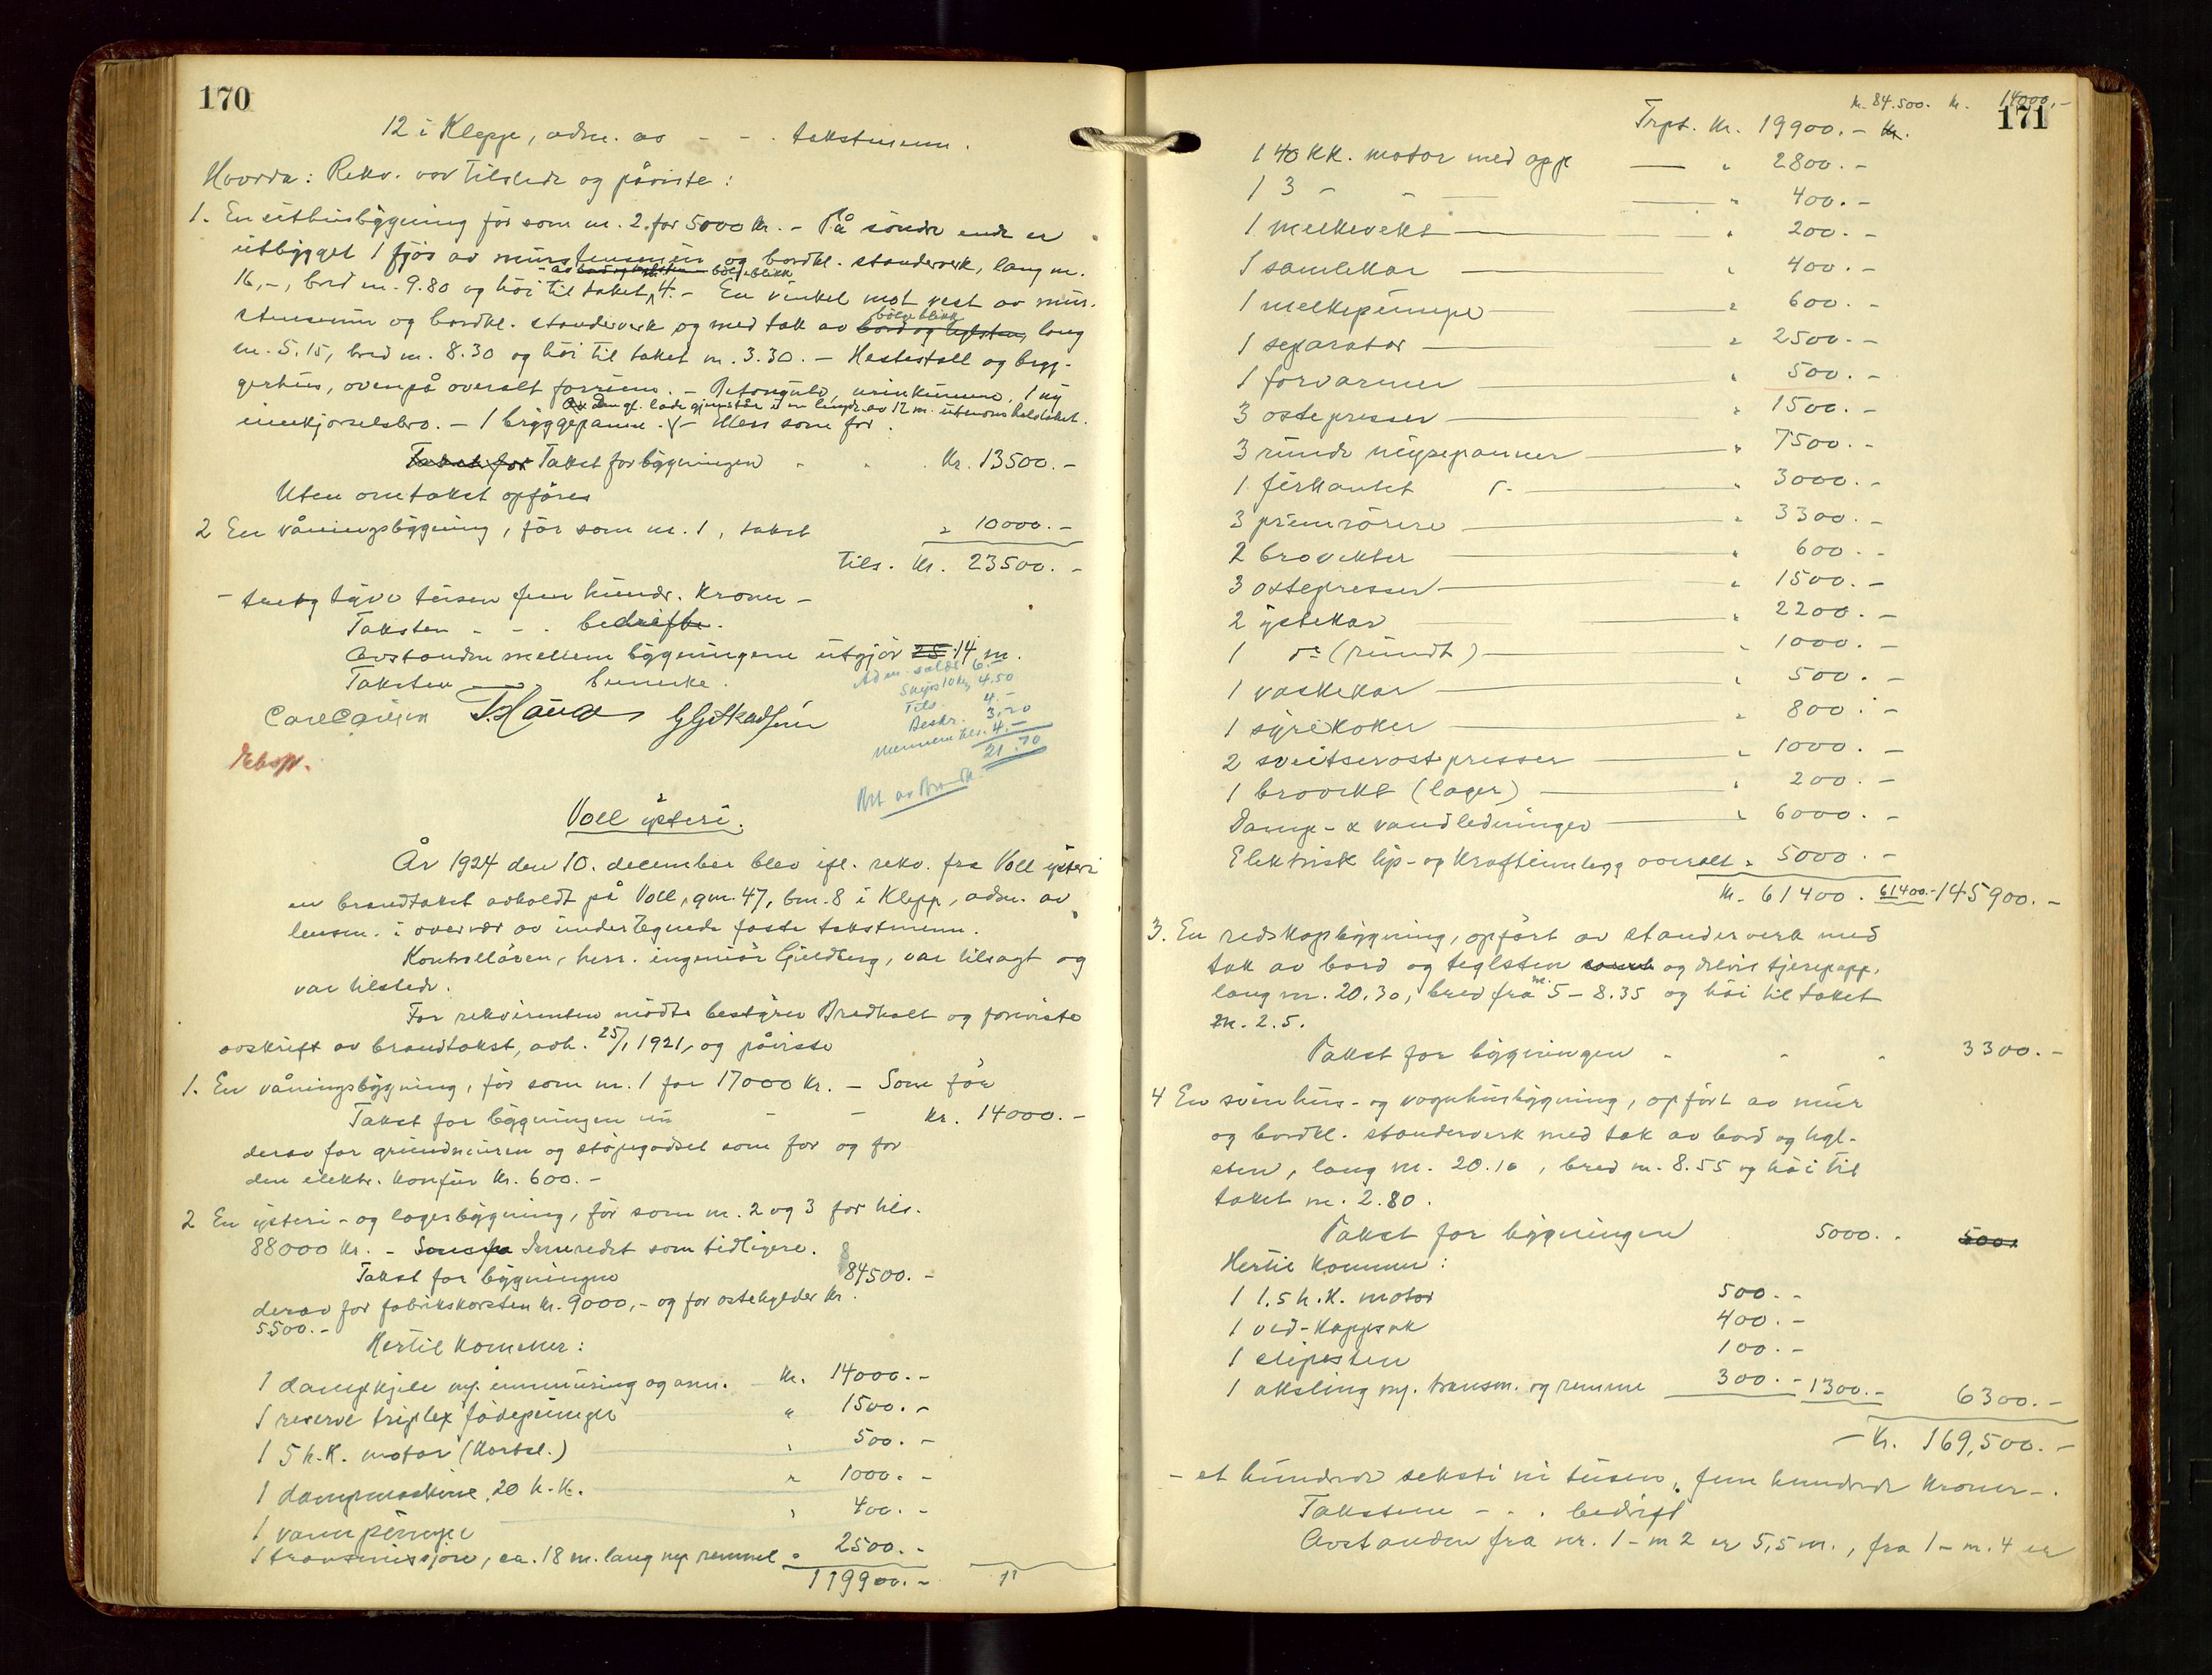 170
12 i Klepp, adm. av - - . takstmenn.
Hvorda: Rekv. var tilstede og påviste:
1. En uthusbygning før som nr. 2. for 5000 kr. - På søndre ende er
utbygget 1 fjøs av murstensmur og bordkl. standerverk, lang m.
16,-, bred m. 9.80 og høi til taket, 4.- En vinkel mot vest av mur-
- av bord og teglsten bølgeblikk
stensmur og bordkl. standerverk og med tak av bord og teglsten, lang
bølgeblikk
m. 5.15, bred m. 8.30 og høi til taket m. 3.30. - Hestestall og bryg-
gerhus, ovenpå overalt forrum. - Betongulv, urinkumme, 1 ny
innkjørselsbro. - 1 bryggepanne. - Ellers som før.
Av den gl. lade gjenstår i en lengde av 12 m.
Takst for Takst for bygningen . . . Kr. 13500.-
Uten omtakst opføres
2 En våningsbygning, før som nr. 1, takst " 10000.-
Tils. Kr. 23500.-
- tre og tyve tusen fem hundr. Kroner -
Taksten - - . bedrifte.
Avstanden mellem bygningene utgjør 25 14 m.
Taksten
Adm. 6.-
Skyss 10 km 4.50
Tils. 4.-
Beskr. 3,20
4.-
21.70
Voll ysteri.
År 1924 den 10. december blev efl. rekv. fra Voll ysteri
en brandtakst avholdt på Voll, gnr. 47, bnr. 8 i Klepp, adm. av
lensm. i overvær av undertegnede faste takstmenn.
Kontrolløren, herr. ingeniør Guldberg, var tilsagt og
var tilstede.
For rekvirenten mødte bestyrer Bredholt og foreviste
avskrift av brandtakst, avh. 25/1 1921, og påviste
1. En våningsbygning, før som nr. 1 for 17000 Kr. - Som før
Takst for bygningen nu - - Kr. 14000.-
derav for grundmuren og støpegodset som før og for
den elektr. komfur Kr. 600.-
2 En ysteri- og lagerbygning, før som nr. 2 og 3 for tils.
88000 Kr. - Som før Innredet som tidligere.
Takst for bygningen 84500.-
derav for fabrikskorsten Kr. 9000,- og for ostehylder Kr.
5500.-
Hertil kommer:
1 dampkjele m/ innmuring og arm. Kr. 14000.-
1 reserve triplex fødepumpe " 1500.-
1 5 h.K. motor (Kortsl.) " 500.-
1 dampmaskine, 20 h.K. " 1000.-
1 vannpumpe " 400.-
1 transmissjon, ca. 18 m. lang m/ remmer " 2500.-
119900.-
171
Kr. 84.500. Kr. 14000.-
Trpt. Kr. 19900.- Kr.
1 40 KK. motor med opp " 2800.-
1 3 - - " 400.-
1 melkevekt " 200.-
1 samlekar " 400.-
1 melkepumpe " 600.-
1 separator " 2500.-
1 forvarmer " 500.-
3 ostepresser " 1500.-
3 runde mysepanner " 7500.-
1 firkantet " 3000.-
3 primrørere " 3300.-
2 brovekter " 600.-
3 ostepresser " 1500.-
2 ystekar " 2200.-
1 do (rundt) " 1000.-
1 vaskekar " 500.-
1 syrekoker " 800.-
2 sveitserostpresser " 1000.-
1 brovekt (lager) " 200.-
Damp- & vandledninger " 6000.-
Elektrisk lys- og kraftinnlegg overalt " 5000.-
Kr. 61400. 61400.- 145900.-
3. En redskapsbygning, opført av standerverk med
tak av bord og teglsten og delvis tjerepapp,
lang m. 20.30, bred fra m. 5-8.35 og høi til taket
m. 2.5.
Takst for bygningen . . . 3300.-
4 En svinhus- og vognhusbygning, opført av mur
og bordkl. standerverk med tak av bord og tegl-
sten, lang m. 20.10, bred m. 8.55 og høi til
taket m. 2.80.
Takst for bygningen 5000. . 5000
Hertil kommer:
1 1.5 h.K. motor 500.-
1 ved-kappsak 400.-
1 slipesten 100.-
1 aksling m/ transm. og remme 300.- 1300.- 6300.-
- Kr. 169,500.-
- et hundrede seksti ni tusen, fem hundrede Kroner -.
Takstene - - . bedrift
Avstanden fra nr. 1 - nr 2 er 5,5 m., fra 1 - nr. 4 er